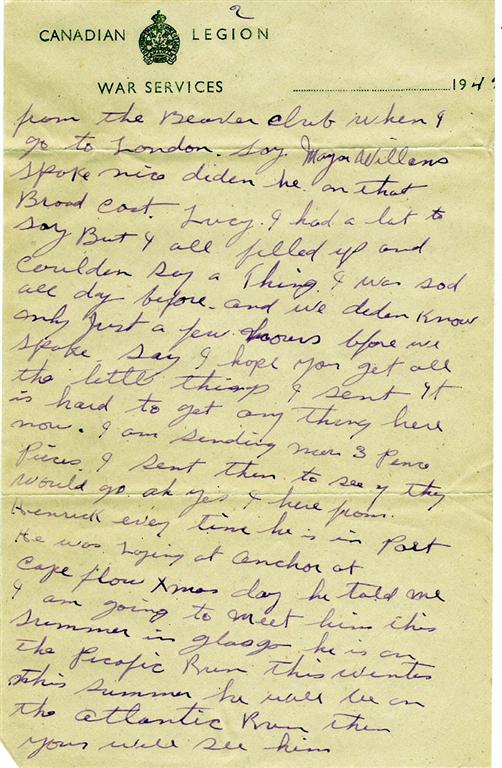 2
CANADIAN LEGION
WAR SERVICES
194
from the Beaver club when I
go to London. Say Mayor Willans
spoke nice diden he on that
Broad Cast. Lucy I had a lot to
say But I all filled up and
Coulden say a Thing. I was sad
all day before. and we diden Know
only Just a few hours bfore we
spoke. Say I hope you get all
the little things I sent It
is hard to get any thing here
now. I am sending more 3 Penc
Pieces. I sent them to see if they
would go. ah yes I here from
Henrick evey time he is in Port
He was Laying at anchor at
Cape flow Xmas day he told me
I am going to meet him this
summer in glasgo he is on
the Picafic Run this winter
this summer he will be on
the atlantic Run then
yous will see him